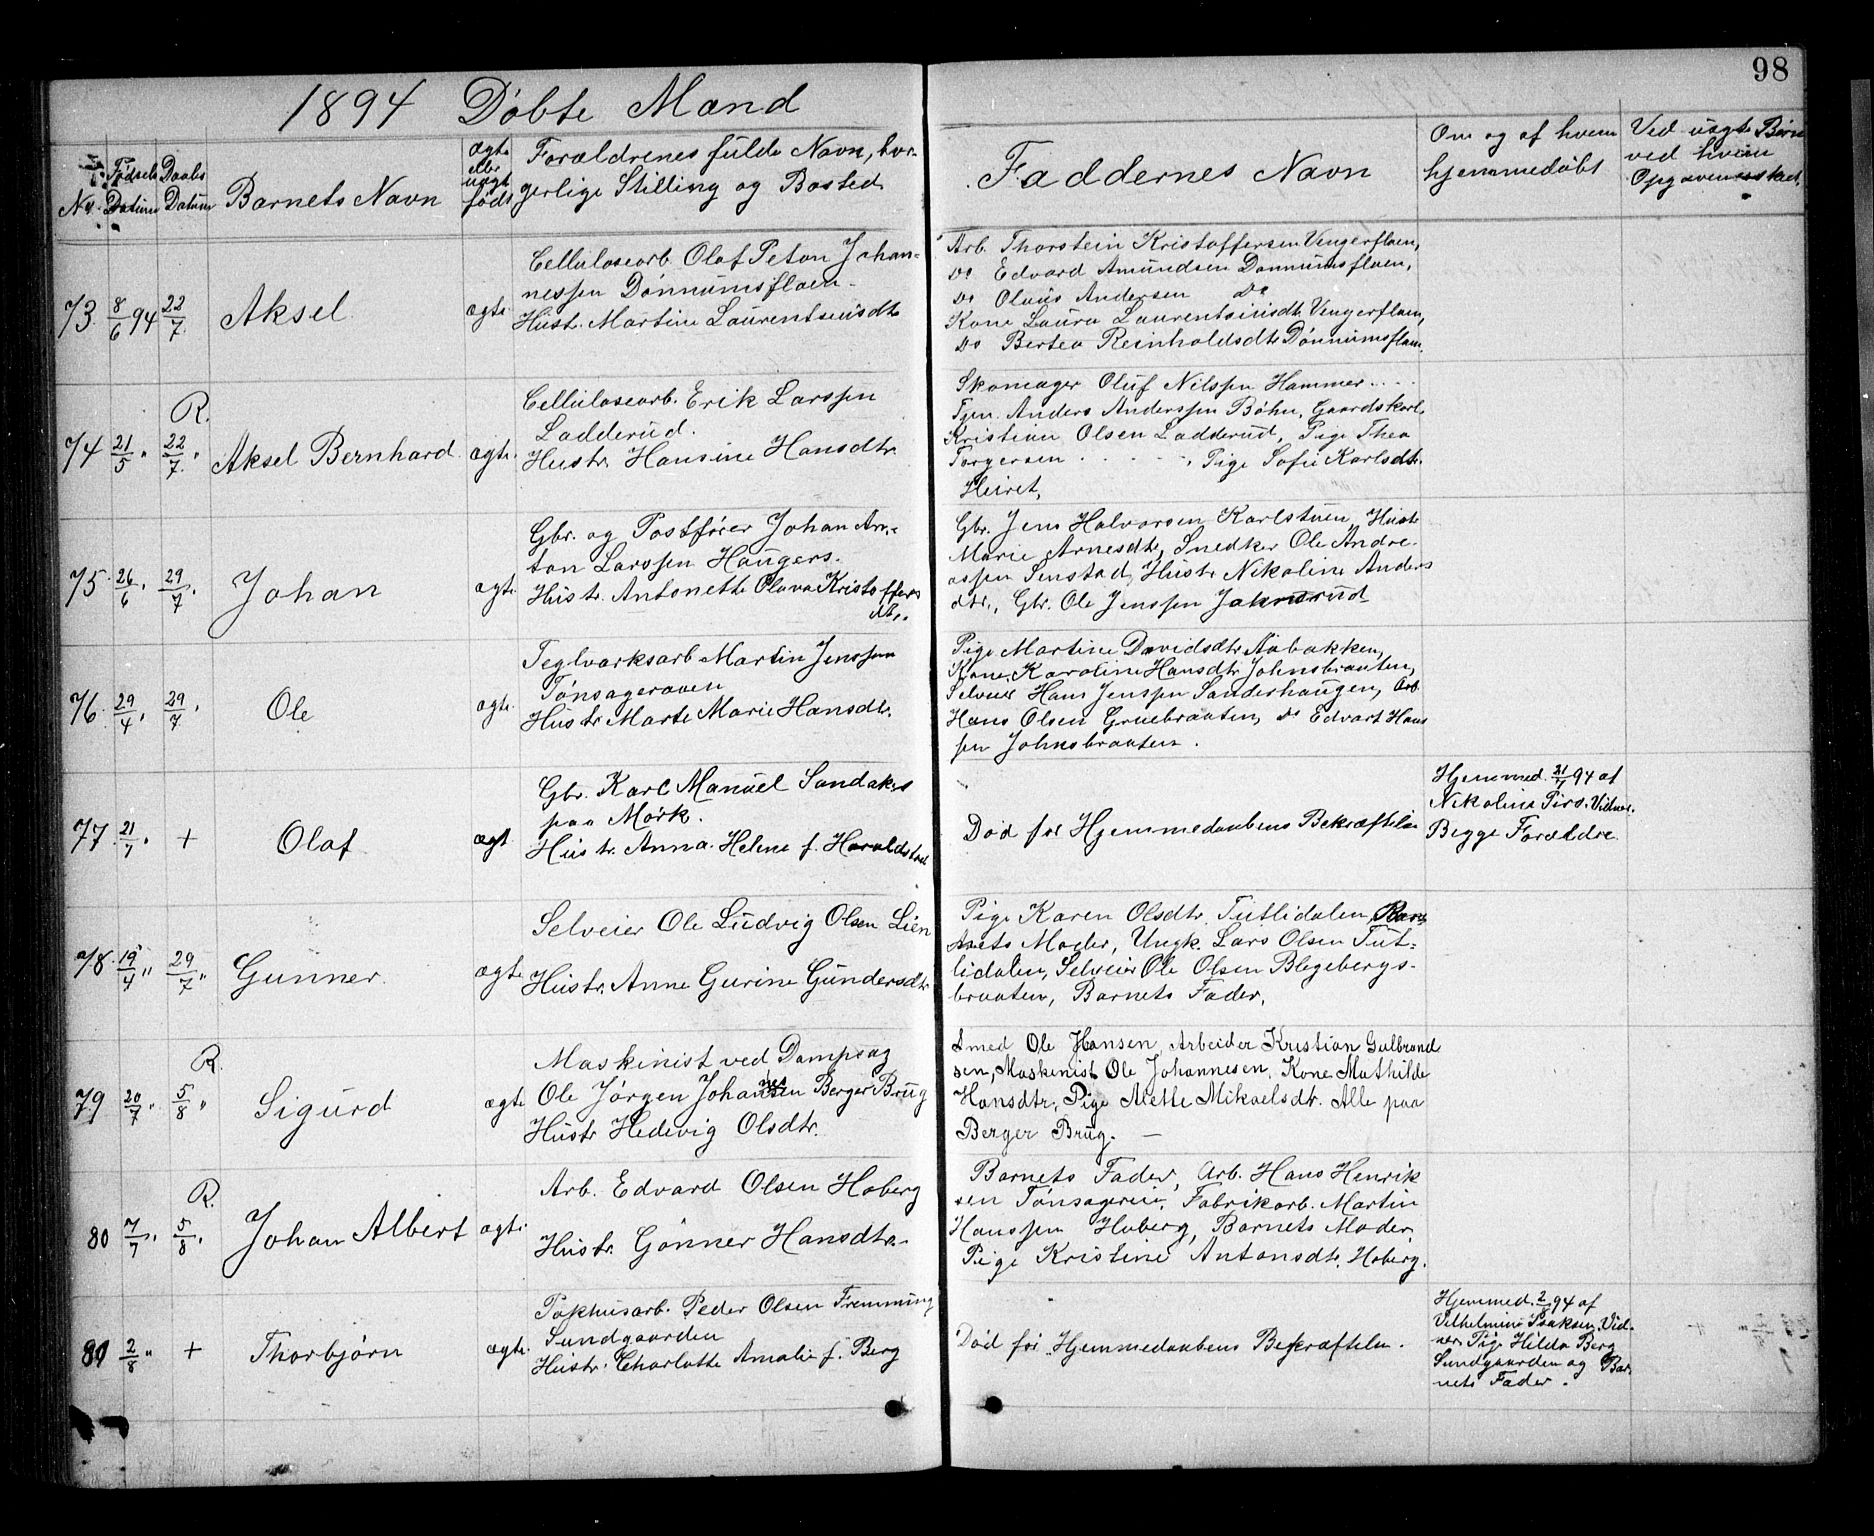 98
1894 Döbte Mænd
No. Födsels Datum Daabs Datum Barnets Navn ægte eller uægte födt Forældrenes fulde Navn, borgerlige Stilling og Bosted Faddernes Navn Om og af hvem hjemmedøbt Ved uægte Børn ved hvem Opgaven
73. 8/6 94 22/7. Aksel. ægte.
Cellulosearb. Olaf Peton Johan-
nessen Dönnumsfloen.
Hustr. Martine Laurentsensdtr
Arb. Thorstein Kristoffersen Vengerfloen,
Do Edvard Amundsen Dønnumsfloen,
Do Olaus Andersen Do
Kone Laura Laurentsensdtr Vengerfloen,
Do Bertea Reinholdsdtr Dönnumsfloen.
R.
74 21/5 " 22/7. " Aksel Bernhard. ægte.
Celluloseorb. Erik Larssen
Ladderud.
Hustr. Hansine Hansdtr.
Skomager Oluf Nilssen Hammer
Tjen. Anders Anderssen Bøhn, Gaardskarl.
Kristian Olsen Ladderud, Pige Thea
Torgersen , Pige Sofie Karlsdtr.
75. 26/6 " 29/7. Johan ægte.
Gbr. og Postförer Johan An-
ton Larssen Haugers.
Hustr. Antonette Olava Kristoffers
dtr.
Gbr. Jens Halvorsen Karlstuen, Hustr
Marie Arnesdtr, Snedker Ole Andre-
assen Senstad, Hustr Nikoline Anders
dtr., Gbr. Ole Jenssen
76. 29/4 " 29/7 " Ole ægte.
Teglværksarb Martin Jenssen
Tönsageraaen
Hustr Marte Marie Hansdtr.
Pige Martine Davidsdtr Aabakken,
Kone Karoline Hansdtr Johnsbraaten,
Selveier Hans Jenssen Sanderhaugen, Arb.
Hans Olsen Gruebraaten, Do Edvart Hans
sen Johnsbraaten.
77. 21/7 " + Olaf ægt
Gbr. Karl Manuel Sandaker
paa Mörk.
Hustr. Anna Helene f. Haraldstad
Död för Hjemmedaabens Bekræftelse
Hjemmed. 21/7 94 af
Nikoline Pers. Vidner.
Begge Forældre.
78. 19/4 " 29/7 " Gunner. ægte
Selveier Ole Ludvig Olsen Lien
Hustr. Anne Gurine Gundersdtr
Pige Karen Olsdtr. Tutlidalen, Bar-
nets Moder, Ungk. Lars Olsen Tut-
lidalen, Selveier Ole Olsen Blegebergs-
braaten, Barnets Fader.
R.
79 20/7 " 5/8 " Sigurd ægte
Maskinist ved Dampsag
Ole Jørgen Johannesen Berger Brug
Hustr Hedevig Olsdtr.
Smed Ole Hansen, Arbeider Kristian Gulbrand
sen, Maskinist Ole Johannesen, Kone Mathilde
Hansdtr, Pige Mette Mikaelsdtr. Alle paa
Berger Brug. —
R.
80 7/7 " 5/8 " Johan Albert ægte.
Arb. Edvard Olsen Hoberg
Hustr. Gönner Hansdtr.
Barnets Fader, Arb. Hans Henrik
sen Tönsagereie, Fabrikarb. Martin
Hanssen Hoberg, Barnets Moder,
Pige Kristine Antonsdtr. Hoberg.
81 2/8 " + Thorbjörn ægte.
Pakhusarb. Peder Olsen Fremming
Sundgaarden
Hustr. Charlotte Amalie f. Berg
Död för Hjemmedaabens Bekræftelse.
Hjemmed. 2/8 94 af
Vilhelmine Isaksen, Vid-
ner Pige Hilda Berg
Sundgaarden og Bar-
nets Fader.